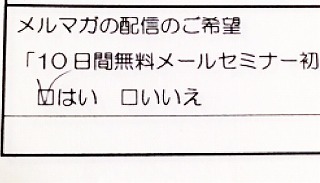 メルマガの配信のご希望
「10日間無料メールセミナー初
☑はい □いいえ